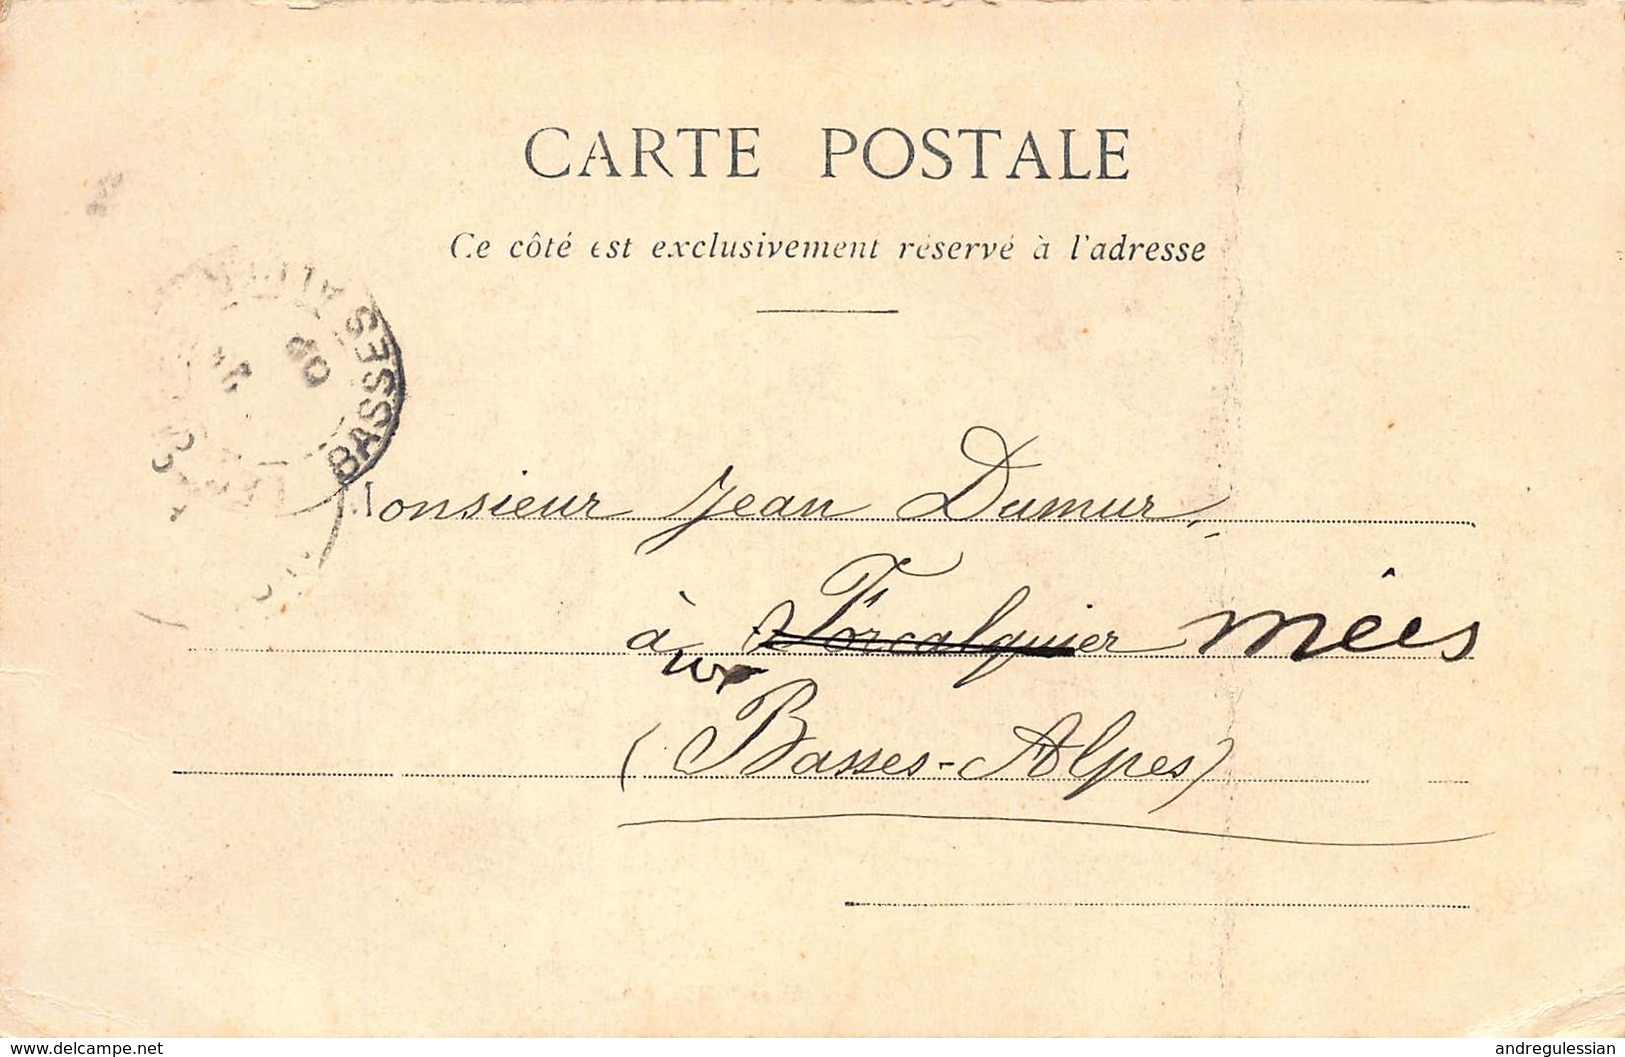 CARTE POSTALE
Ce côté est exclusivement réservé à l'adresse
BASSES
Monsieur Jean Dumur,
à Forcalquier mées
aux
(Basses-Alpes)
www.delcampe.net
andregulessian